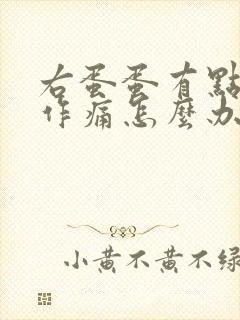 右蛋蛋有點
作痛怎麼办
小黃不黃不綠